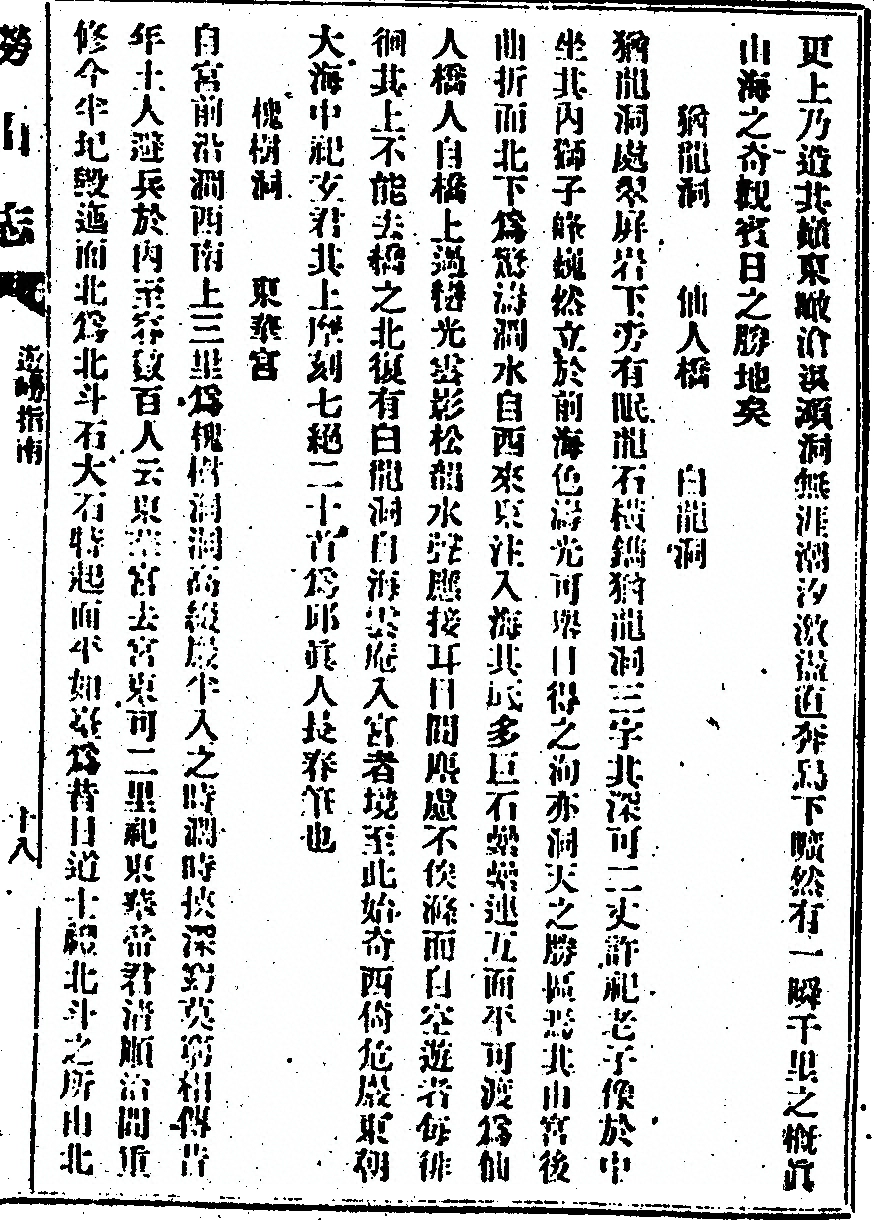 更上乃造其巔東瞰滄溟澒洞無涯潮汐激盪直奔島下曠然有一瞬千里之概眞
山海之奇觀賓日之勝地矣
猶龍洞 仙人橋 白龍洞
猶龍洞處翠屏岩下旁有眠龍石橫鐫猶龍洞三字其深可二丈許祀老子像於中
坐其內獅子峰巍然立於前海色濤光可舉目得之洵亦洞天之勝區焉其由宮後
曲折而北下爲驚濤澗水自西來東注入海其底多巨石礧礧連互而平可渡爲仙
人橋人自橋上過嵐光雲影松韻水聲應接耳目間塵慮不俟滌而自空遊者每徘
徊其上不能去橋之北復有白龍洞自海雲庵入宮者境至此始奇西倚危巖東朝
大海中祀玄君其上摩刻七絕二十首爲邱眞人長春筆也
槐樹洞 東華宮
自宮前沿澗西南上三里爲槐樹洞洞高綴巖半入之時濶時挾深窈莫窮相傳昔
年土人避兵於內至容數百人云東華宮去宮東可二里祀東華帝君淸順治間重
修今半圮毀迤而北爲北斗石大石特起面平如臺爲昔日道士禮北斗之所由北
勞山志
遊嶗指南
十八